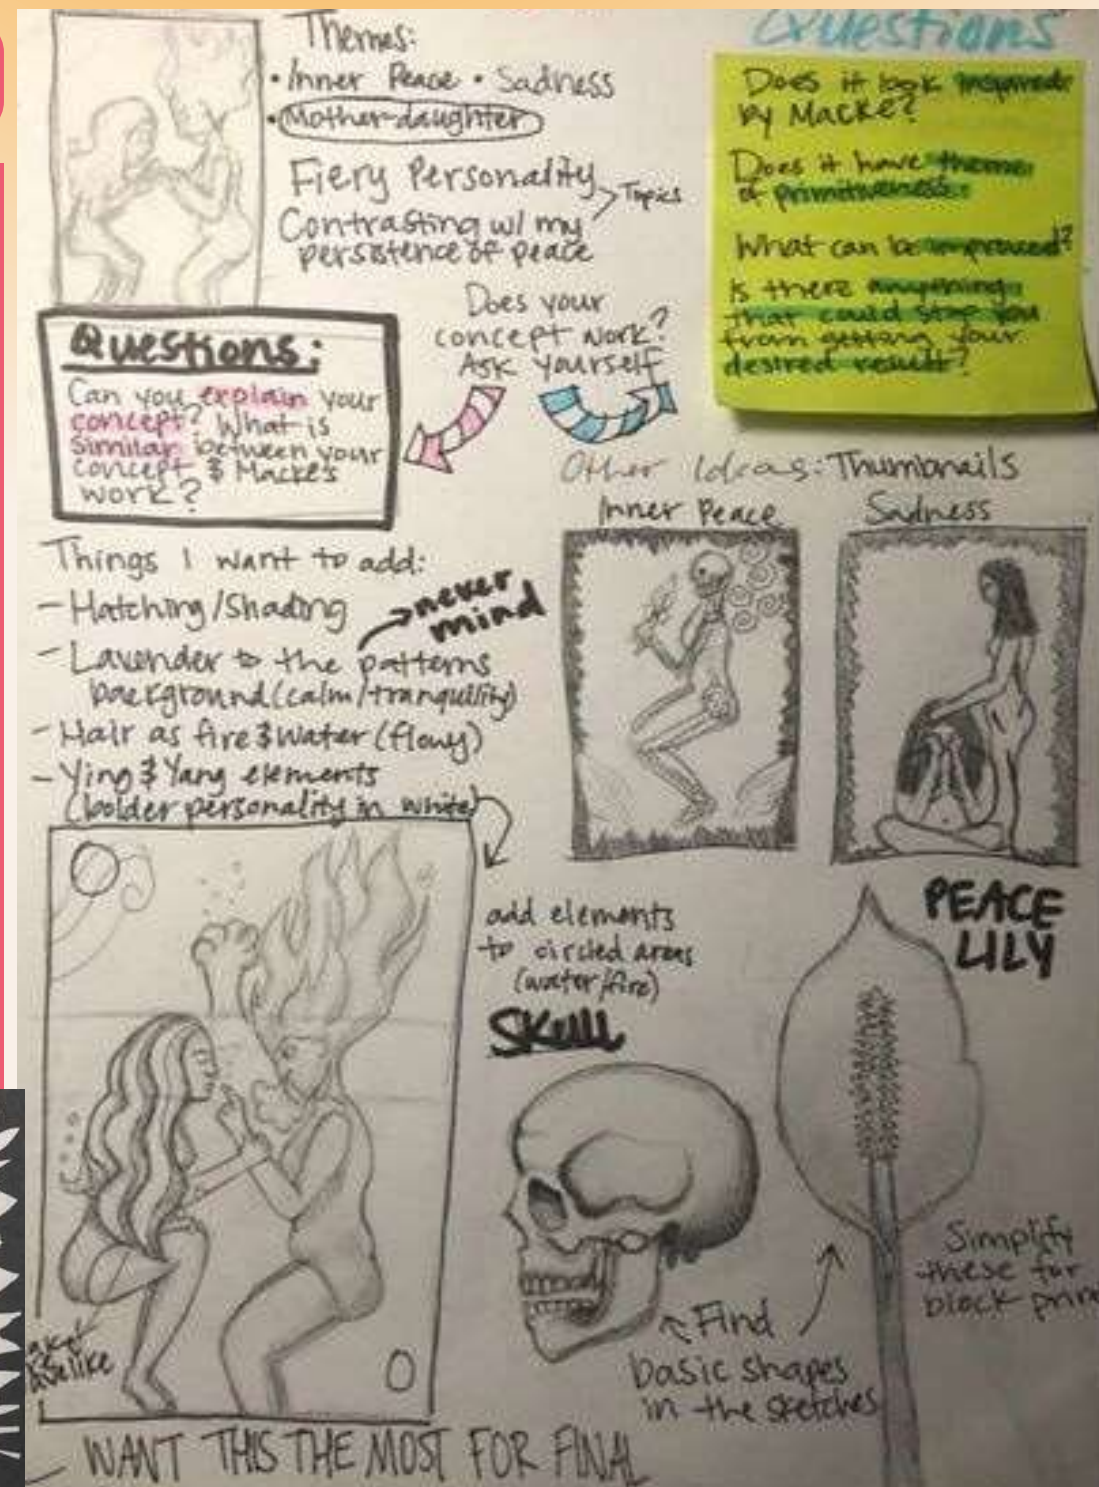 Themes:
• Inner Peace • Sadness
• Mother-daughter
Fiery Personality
Contrasting w/ my
persistence of peace
Topics
Questions
Does it look inspired
by Macke?
Does it have theme
of primitiveness?
What can be improved?
Is there anything
that could stop you
from getting your
desired result?
Does your
concept work?
Ask yourself
Questions:
Can you explain your
concept? What is
similar between your
concept & Macke's
work?
Other Ideas: Thumbnails
Inner Peace
Sadness
Things I want to add:
- Hatching/Shading
never
mind
- Lavender to the patterns
background (calm/tranquility)
- Hair as fire & water (flowy)
- Ying & Yang elements
(bolder personality in white)
add elements
to circled areas
(water/fire)
SKULL
PEACE
LILY
Simplify
these for
block
Find
basic shapes
in the sketches
WANT THIS THE MOST FOR FINAL